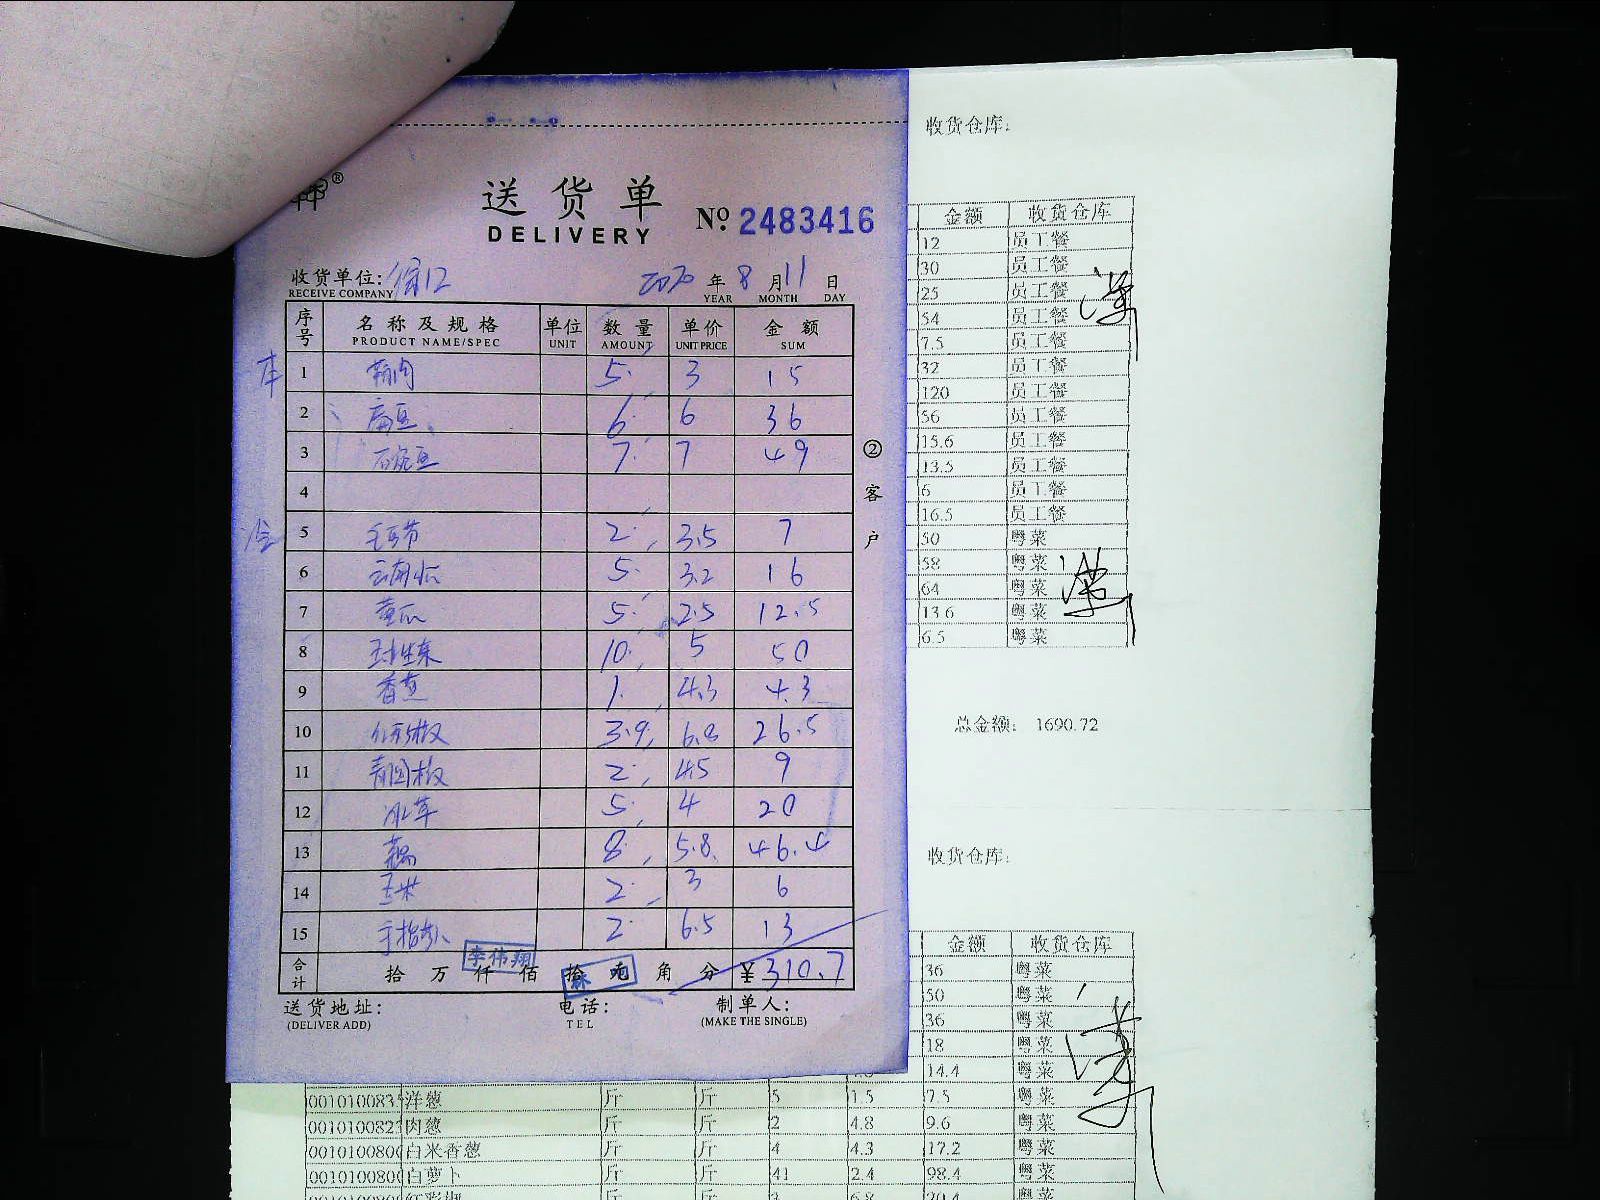 送货单
DELIVERY
№ 2483416
收货单位:
RECEIVE COMPANY
2020 年 8 月 11 日
YEAR MONTH DAY
序号 名称及规格 单位 数量 单价 金额
PRODUCT NAME/SPEC UNIT AMOUNT UNIT PRICE SUM
1 5 3 15
2 扁豆 6 6 36
3 7 7 49
4
5 2 3.5 7
6 5 3.2 16
7 黄瓜 5 2.5 12.5
8 球生菜 10 5 50
9 香葱 1 4.3 4.3
10 红彩椒 3.9 6.8 26.5
11 青圆椒 2 4.5 9
12 5 4 20
13 8 5.8 46.4
14 玉米 2 3 6
15 2 6.5 13
合计 拾 万 仟 佰 拾 元 角 分 ¥310.7
李伟翔
送货地址: 电话: 制单人:
(DELIVER ADD) TEL (MAKE THE SINGLE)
②客户
收货仓库:
金额 收货仓库
12 员工餐
30 员工餐
25 员工餐
54 员工餐
7.5 员工餐
32 员工餐
120 员工餐
56 员工餐
15.6 员工餐
13.5 员工餐
6 员工餐
16.5 员工餐
50 粤菜
58 粤菜
64 粤菜
13.6 粤菜
6.5 粤菜
总金额: 1690.72
收货仓库:
金额 收货仓库
36 粤菜
50 粤菜
36 粤菜
18 粤菜
14.4 粤菜
洋葱 斤 斤 5 1.5 7.5 粤菜
肉葱 斤 斤 2 4.8 9.6 粤菜
白米香葱 斤 斤 4 4.3 17.2 粤菜
白萝卜 斤 斤 41 2.4 98.4 粤菜